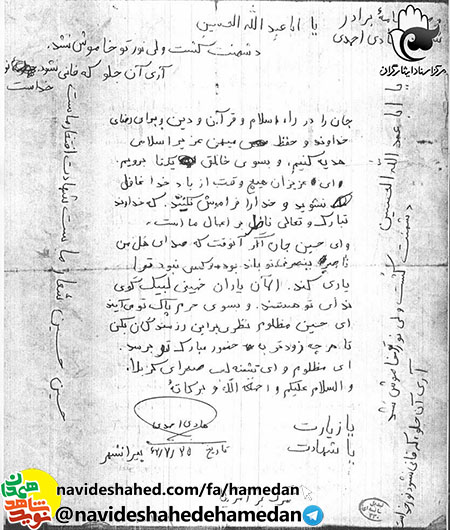 یا ابا عبد الله الحسین
برادر
هادی احمدی
دشمنت کشت ولی نور تو خاموش نشد
آری آن جلوه که فانی نشود نور خداست
مرکز اسناد ایثارگران
جان را در راه اسلام و قرآن و دین و برای رضای
خداوند و حفظ میهن عزیز اسلامی
هدیه کنیم و بسوی خالق یکتا برویم.
ای عزیزان هیچ وقت از یاد خدا غافل
نشوید و خدا را فراموش نکنید که خداوند
تبارک و تعالی ناظر بر اعمال ما است.
و ای حسین جان اگر آنوقت که صدای هل من
ناصر ینصرنی تو بلند بود و کس نبود تو را
یاری کند. الآن یاران خمینی لبیک گوی
ندای تو هستند. و بسوی حرم پاک تو می آیند
ای حسین مظلوم نظری بر این رزمندگان بکن
تا هر چه زودتر به حضور مبارک تو برسد.
ای مظلوم و ای تشنه لب صحرای کربلا.
و السلام علیکم و رحمة الله و برکاته
یا زیارت
یا شهادت
هادی احمدی
تاریخ ۶۲/۷/۲۵ پیرانشهر
حسین حسین شعار ماست شهادت افتخار ماست
یا ابا عبد الله الحسین
دشمنت کشت ولی نور تو خاموش نشد
آری آن جلوه که فانی نشود نور خداست
نوید شاهد
همدان
navideshahed.com/fa/hamedan
@navideshahedehamedan